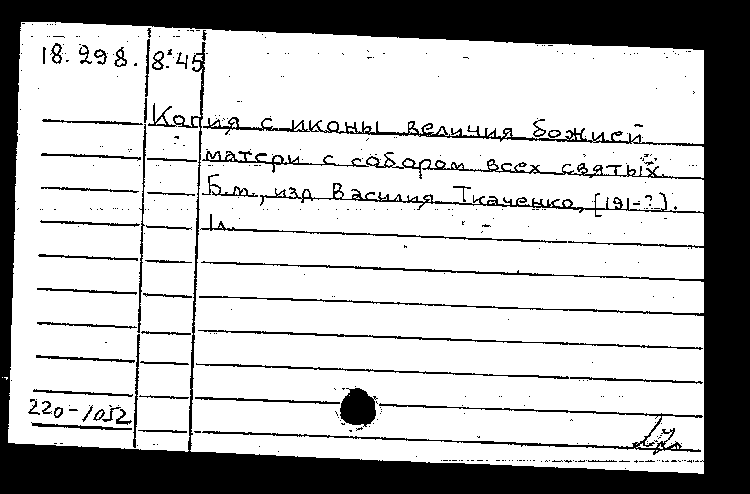 18.298. 8°45
Копия с иконы величия божией
матери с собором всех святых.
Б.м., изд Василия Ткаченко, [191-?].
1л.
220-1052